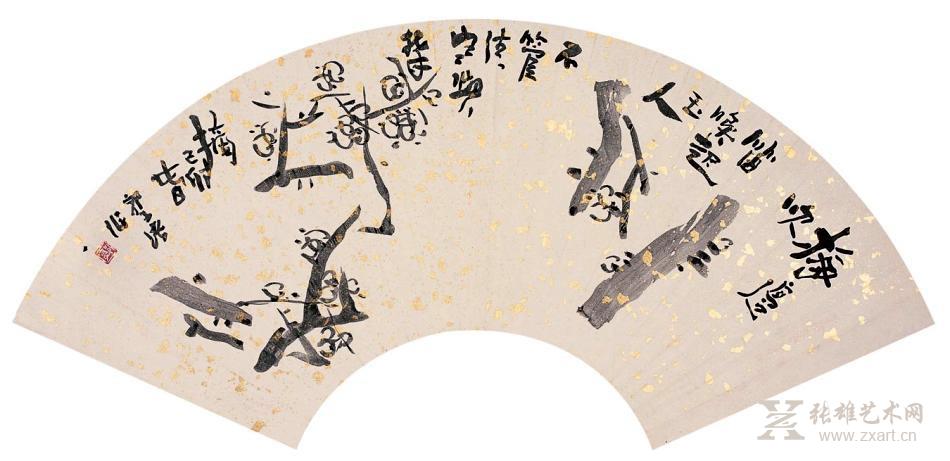 梅邊
吹
笛
喚起
玉
人
不
管
清
寒與
攀
摘
己卯
张雄艺术网
www.zxart.cn